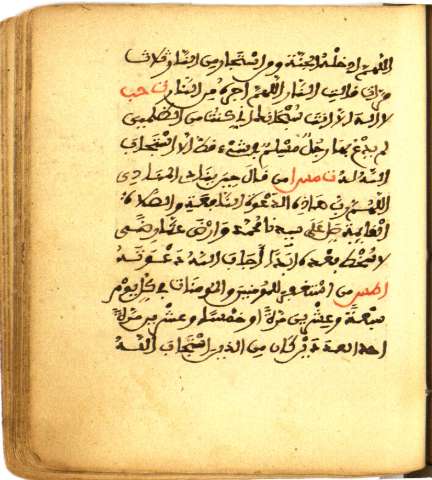 اللهم ادخله الجنة ومن استجار من النار ثلاث
مرات قالت النار اللهم اجره من النار ت حب
لا اله الا انت سبحانك اني كنت من الظلمين
لم يدع بها رجل مسلم في شيء قط الا استجاب
الله له من قال حين ينادي المنادي
اللهم رب هاذه الدعوة النافعة والصلاة
القايمة صل على سيدنا محمد وارض عنا رضى
لا سخط بعده ابدا اجاب الله دعوته
اطس من استغفر للمومنين والمومنات في كل يوم
سبعة وعشرين مرة او خمسا وعشرين مرة
احد العددين كان من الذين استجاب الله